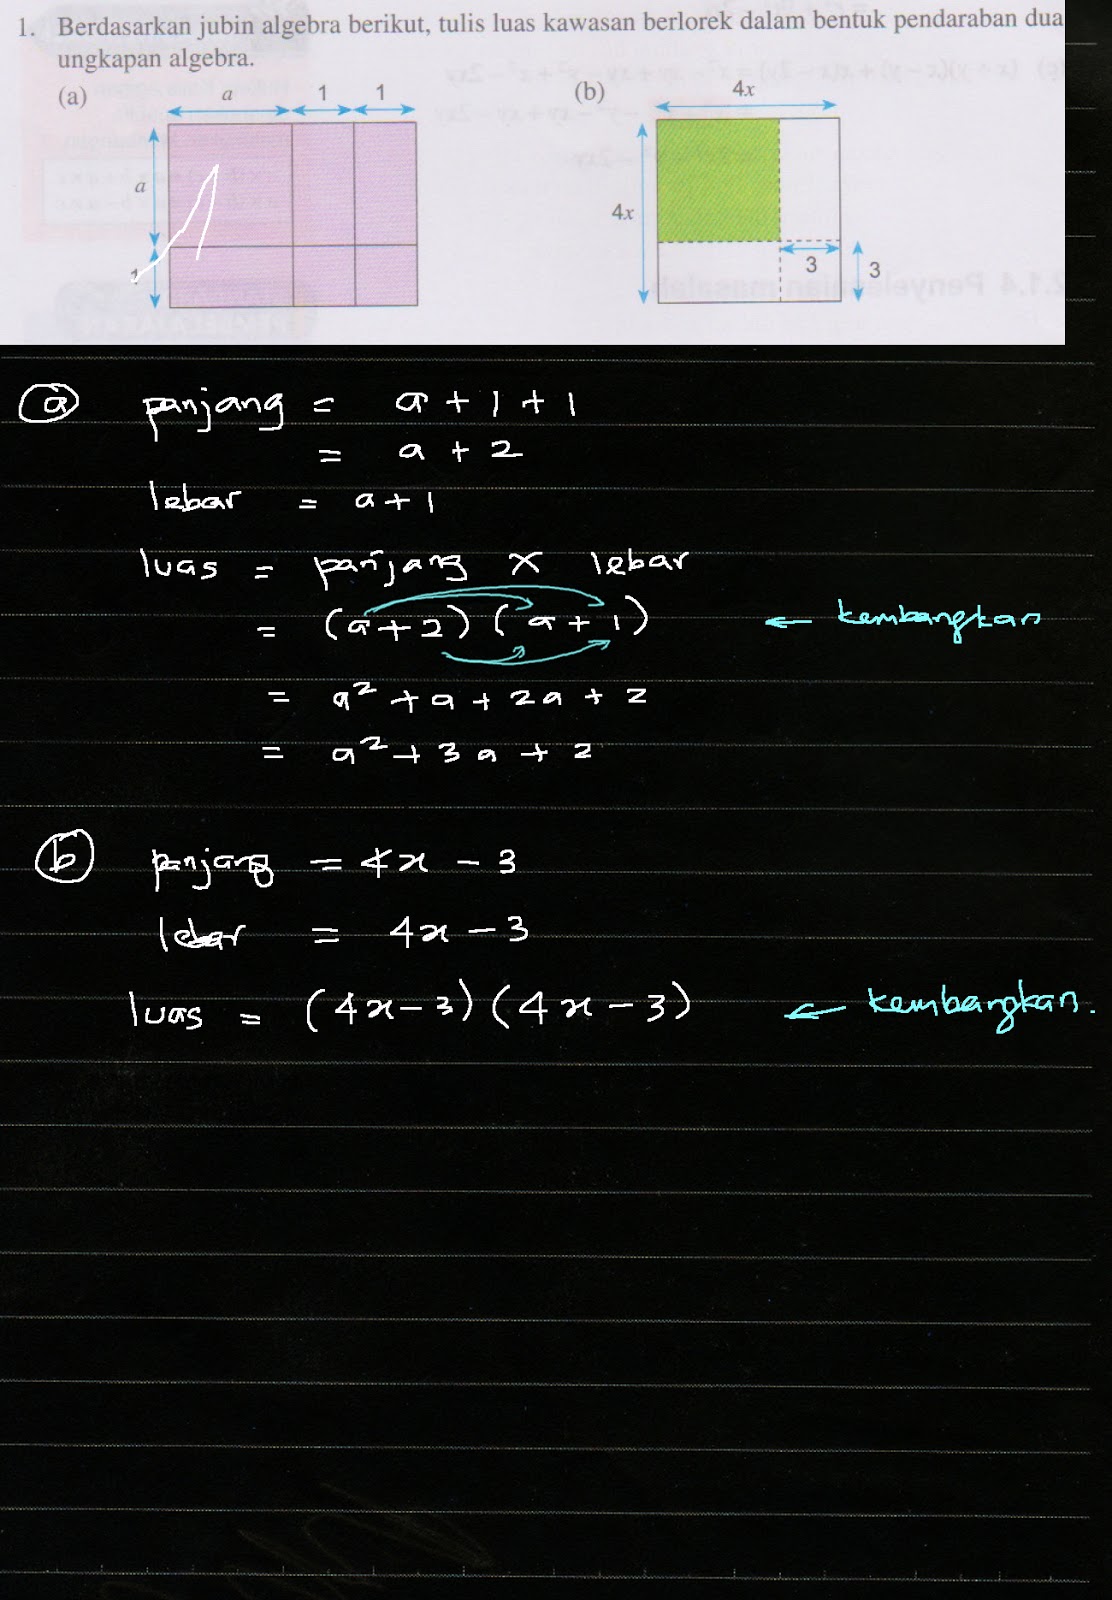 1. Berdasarkan jubin algebra berikut, tulis luas kawasan berlorek dalam bentuk pendaraban dua
ungkapan algebra.
(a)
a 1 1
a
1
(b)
4x
4x
3
3
a panjang = a + 1 + 1
= a + 2
lebar = a + 1
luas = panjang × lebar
= (a + 2) (a + 1) ← kembangkan
= a² + a + 2a + 2
= a² + 3a + 2
b panjang = 4x - 3
lebar = 4x - 3
luas = (4x - 3) (4x - 3) ← kembangkan.